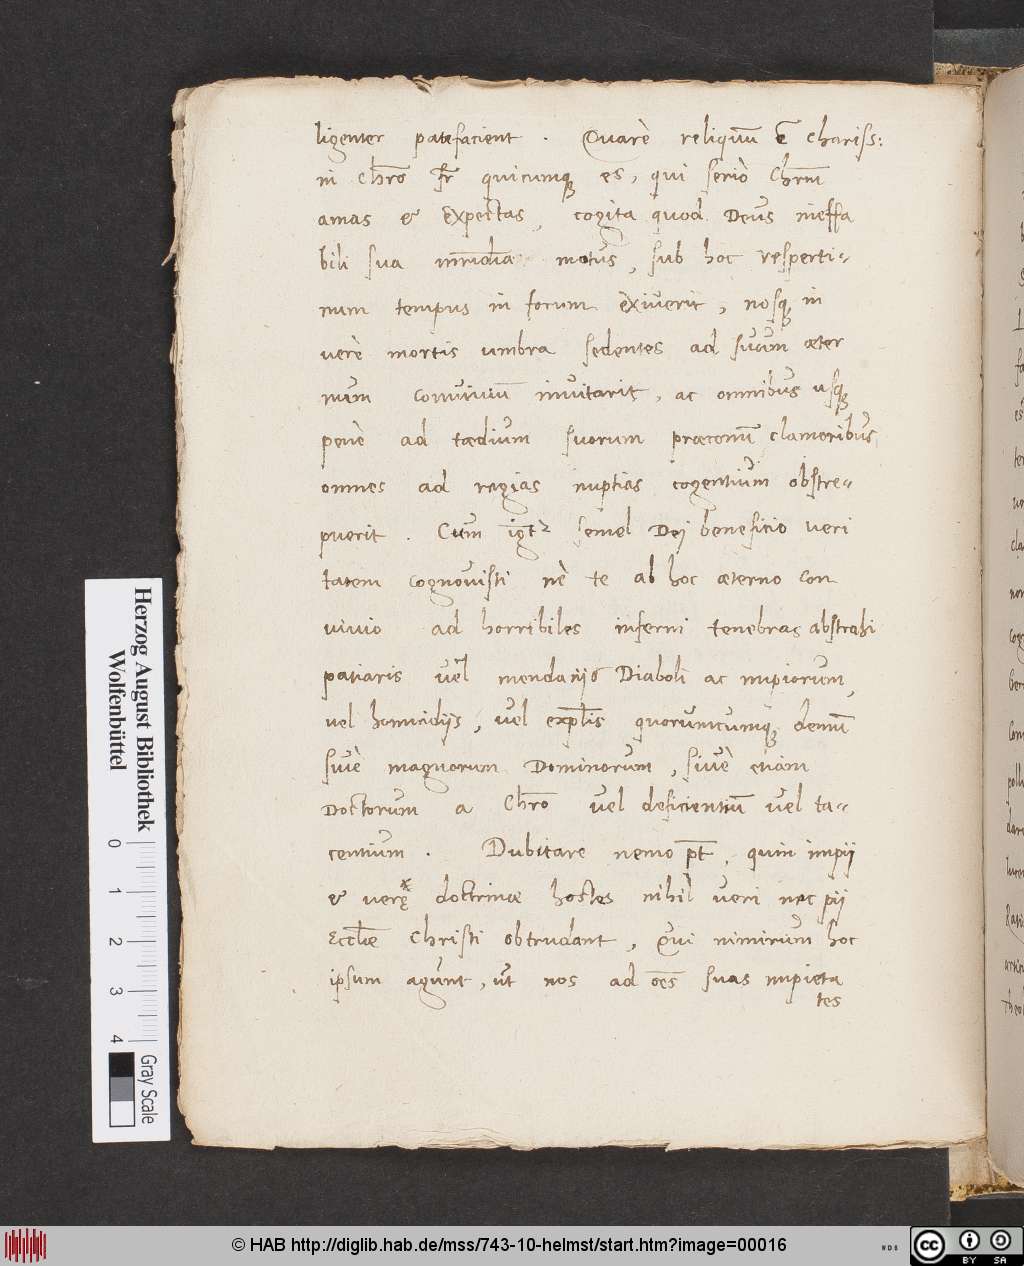 ligenter patefacient. Quarè reliquū ē chariss:
in Chr̄o fr̄ quicumq; es, qui seriò Chr̄m
amas & Expectas, cogita quod Deus ineffa
bili sua mīcīdia motus, sub hoc vesperti-
num tempus in forum exiverit, nosq; in
verè mortis umbra sedentes ad suum æter
num Conviuiū inuitarit, ac omnibus usq;
penè ad tædium suorum præconū clamoribus
omnes ad regias nuptias cogentium obstre-
puerit. Cum igt̄ semel Dei beneficio veri
tatem cognovisti nè te ab hoc æterno con
vivio ad horribiles inferni tenebras abstrahi
patiaris vel mendacijs Diaboli ac impiorum,
vel homicidijs, vel expl̄is quorumcumq; demū
sivè magnorum Dominorum, sivè etiam
Doctorum a Chr̄o vel deficientiū vel ta-
centium. Dubitare nemo pt̄, quin impij
& verę doctrinæ hostes nihil veri nec pij
Eccl̄iæ Christi obtrudant, Qui nimirum hoc
ipsum agunt, ut nos ad oēs suas impieta
tes
Herzog August Bibliothek
Wolfenbüttel
0 1 2 3 4
Gray Scale
© HAB http://diglib.hab.de/mss/743-10-helmst/start.htm?image=00016
cc BY SA